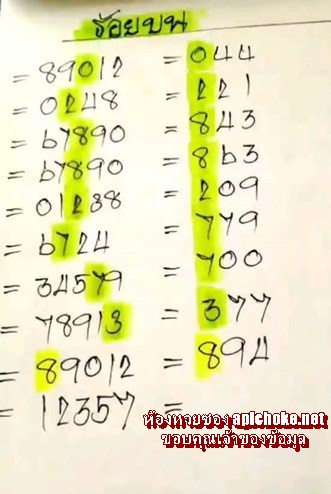 ร้อยบน
= 89012 = 044
= 0248 = 221
= 67890 = 843
= 67890 = 863
= 01288 = 209
= 6724 = 779
= 34579 = 700
= 78913 = 377
= 89012 = 894
= 12357 =
ห้องทายของ apichoke.net
ขอบคุณเจ้าของข้อมูล